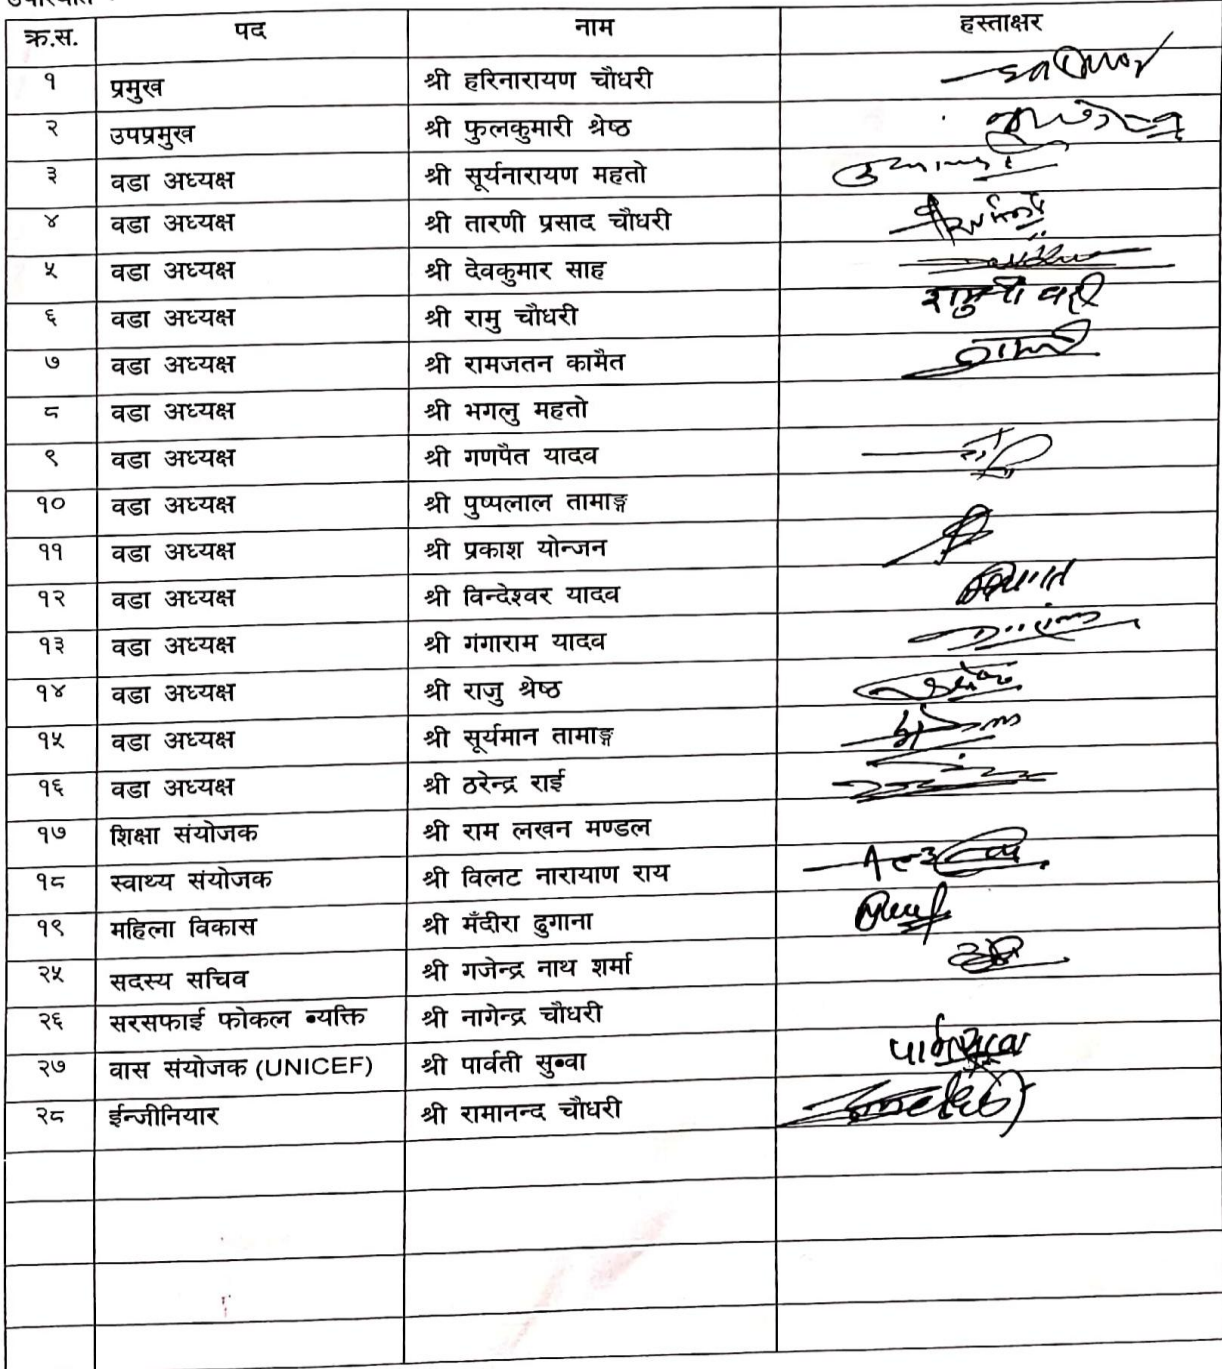 उपस्थिति
क्र.स. पद नाम हस्ताक्षर
१ प्रमुख श्री हरिनारायण चौधरी
२ उपप्रमुख श्री फुलकुमारी श्रेष्ठ
३ वडा अध्यक्ष श्री सूर्यनारायण महतो
४ वडा अध्यक्ष श्री तारणी प्रसाद चौधरी
५ वडा अध्यक्ष श्री देवकुमार साह
६ वडा अध्यक्ष श्री रामु चौधरी
७ वडा अध्यक्ष श्री रामजतन कामैत
८ वडा अध्यक्ष श्री भगलु महतो
९ वडा अध्यक्ष श्री गणपैत यादव
१० वडा अध्यक्ष श्री पुष्पलाल तामाङ्ग
११ वडा अध्यक्ष श्री प्रकाश योन्जन
१२ वडा अध्यक्ष श्री विन्देश्वर यादव
१३ वडा अध्यक्ष श्री गंगाराम यादव
१४ वडा अध्यक्ष श्री राजु श्रेष्ठ
१५ वडा अध्यक्ष श्री सूर्यमान तामाङ्ग
१६ वडा अध्यक्ष श्री ठरेन्द्र राई
१७ शिक्षा संयोजक श्री राम लखन मण्डल
१८ स्वाथ्य संयोजक श्री विलट नारायाण राय
१९ महिला विकास श्री मँदीरा ढुगाना
२५ सदस्य सचिव श्री गजेन्द्र नाथ शर्मा
२६ सरसफाई फोकल ब्यक्ति श्री नागेन्द्र चौधरी
२७ वास संयोजक (UNICEF) श्री पार्वती सुब्वा
२८ ईन्जीनियार श्री रामानन्द चौधरी